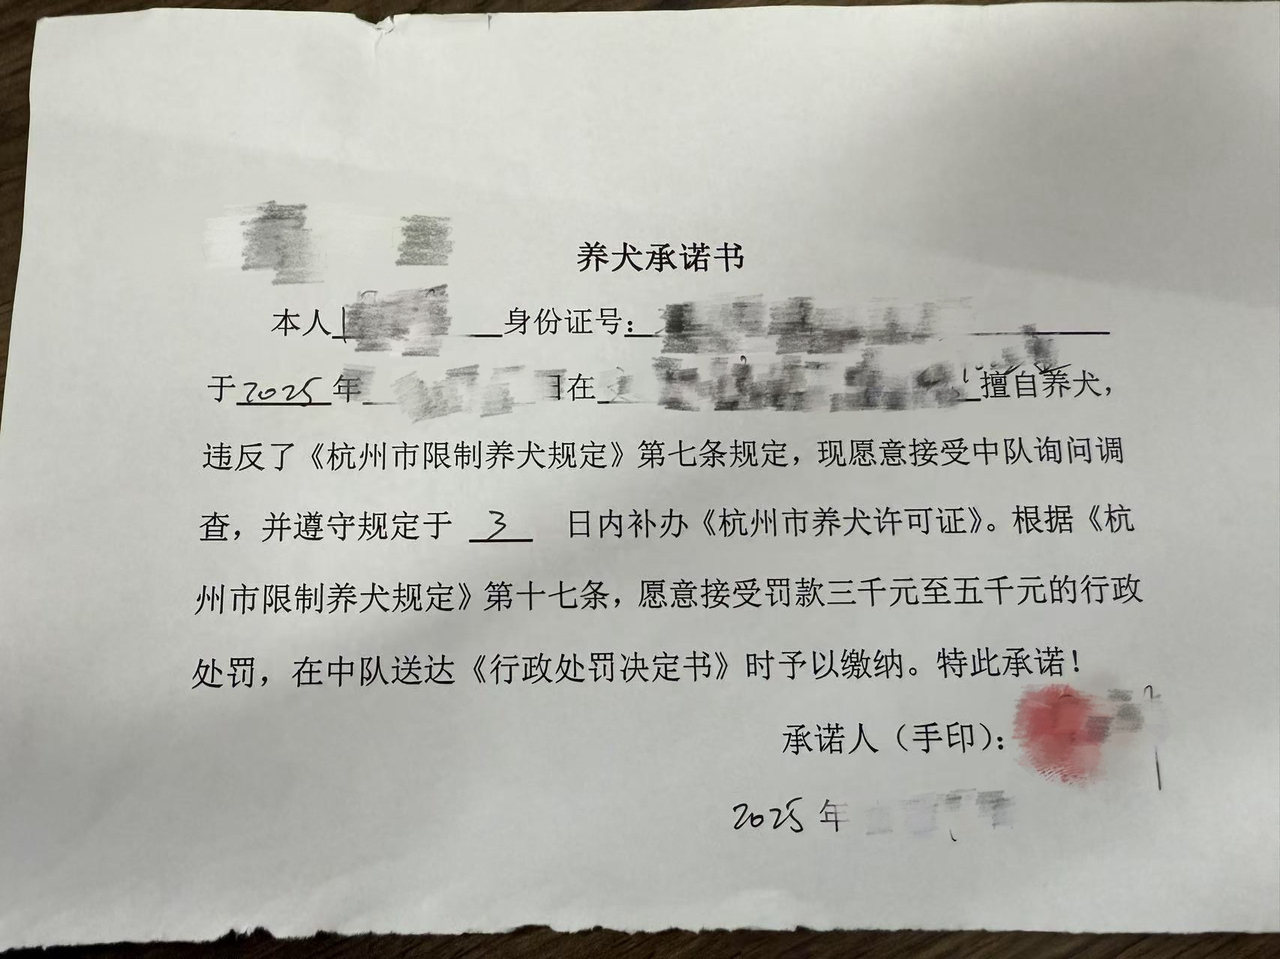 养犬承诺书
本人 身份证号：
于2025年 在 擅自养犬，
违反了《杭州市限制养犬规定》第七条规定，现愿意接受中队询问调
查，并遵守规定于 3 日内补办《杭州市养犬许可证》。根据《杭
州市限制养犬规定》第十七条，愿意接受罚款三千元至五千元的行政
处罚，在中队送达《行政处罚决定书》时予以缴纳。特此承诺！
承诺人（手印）：
2025年